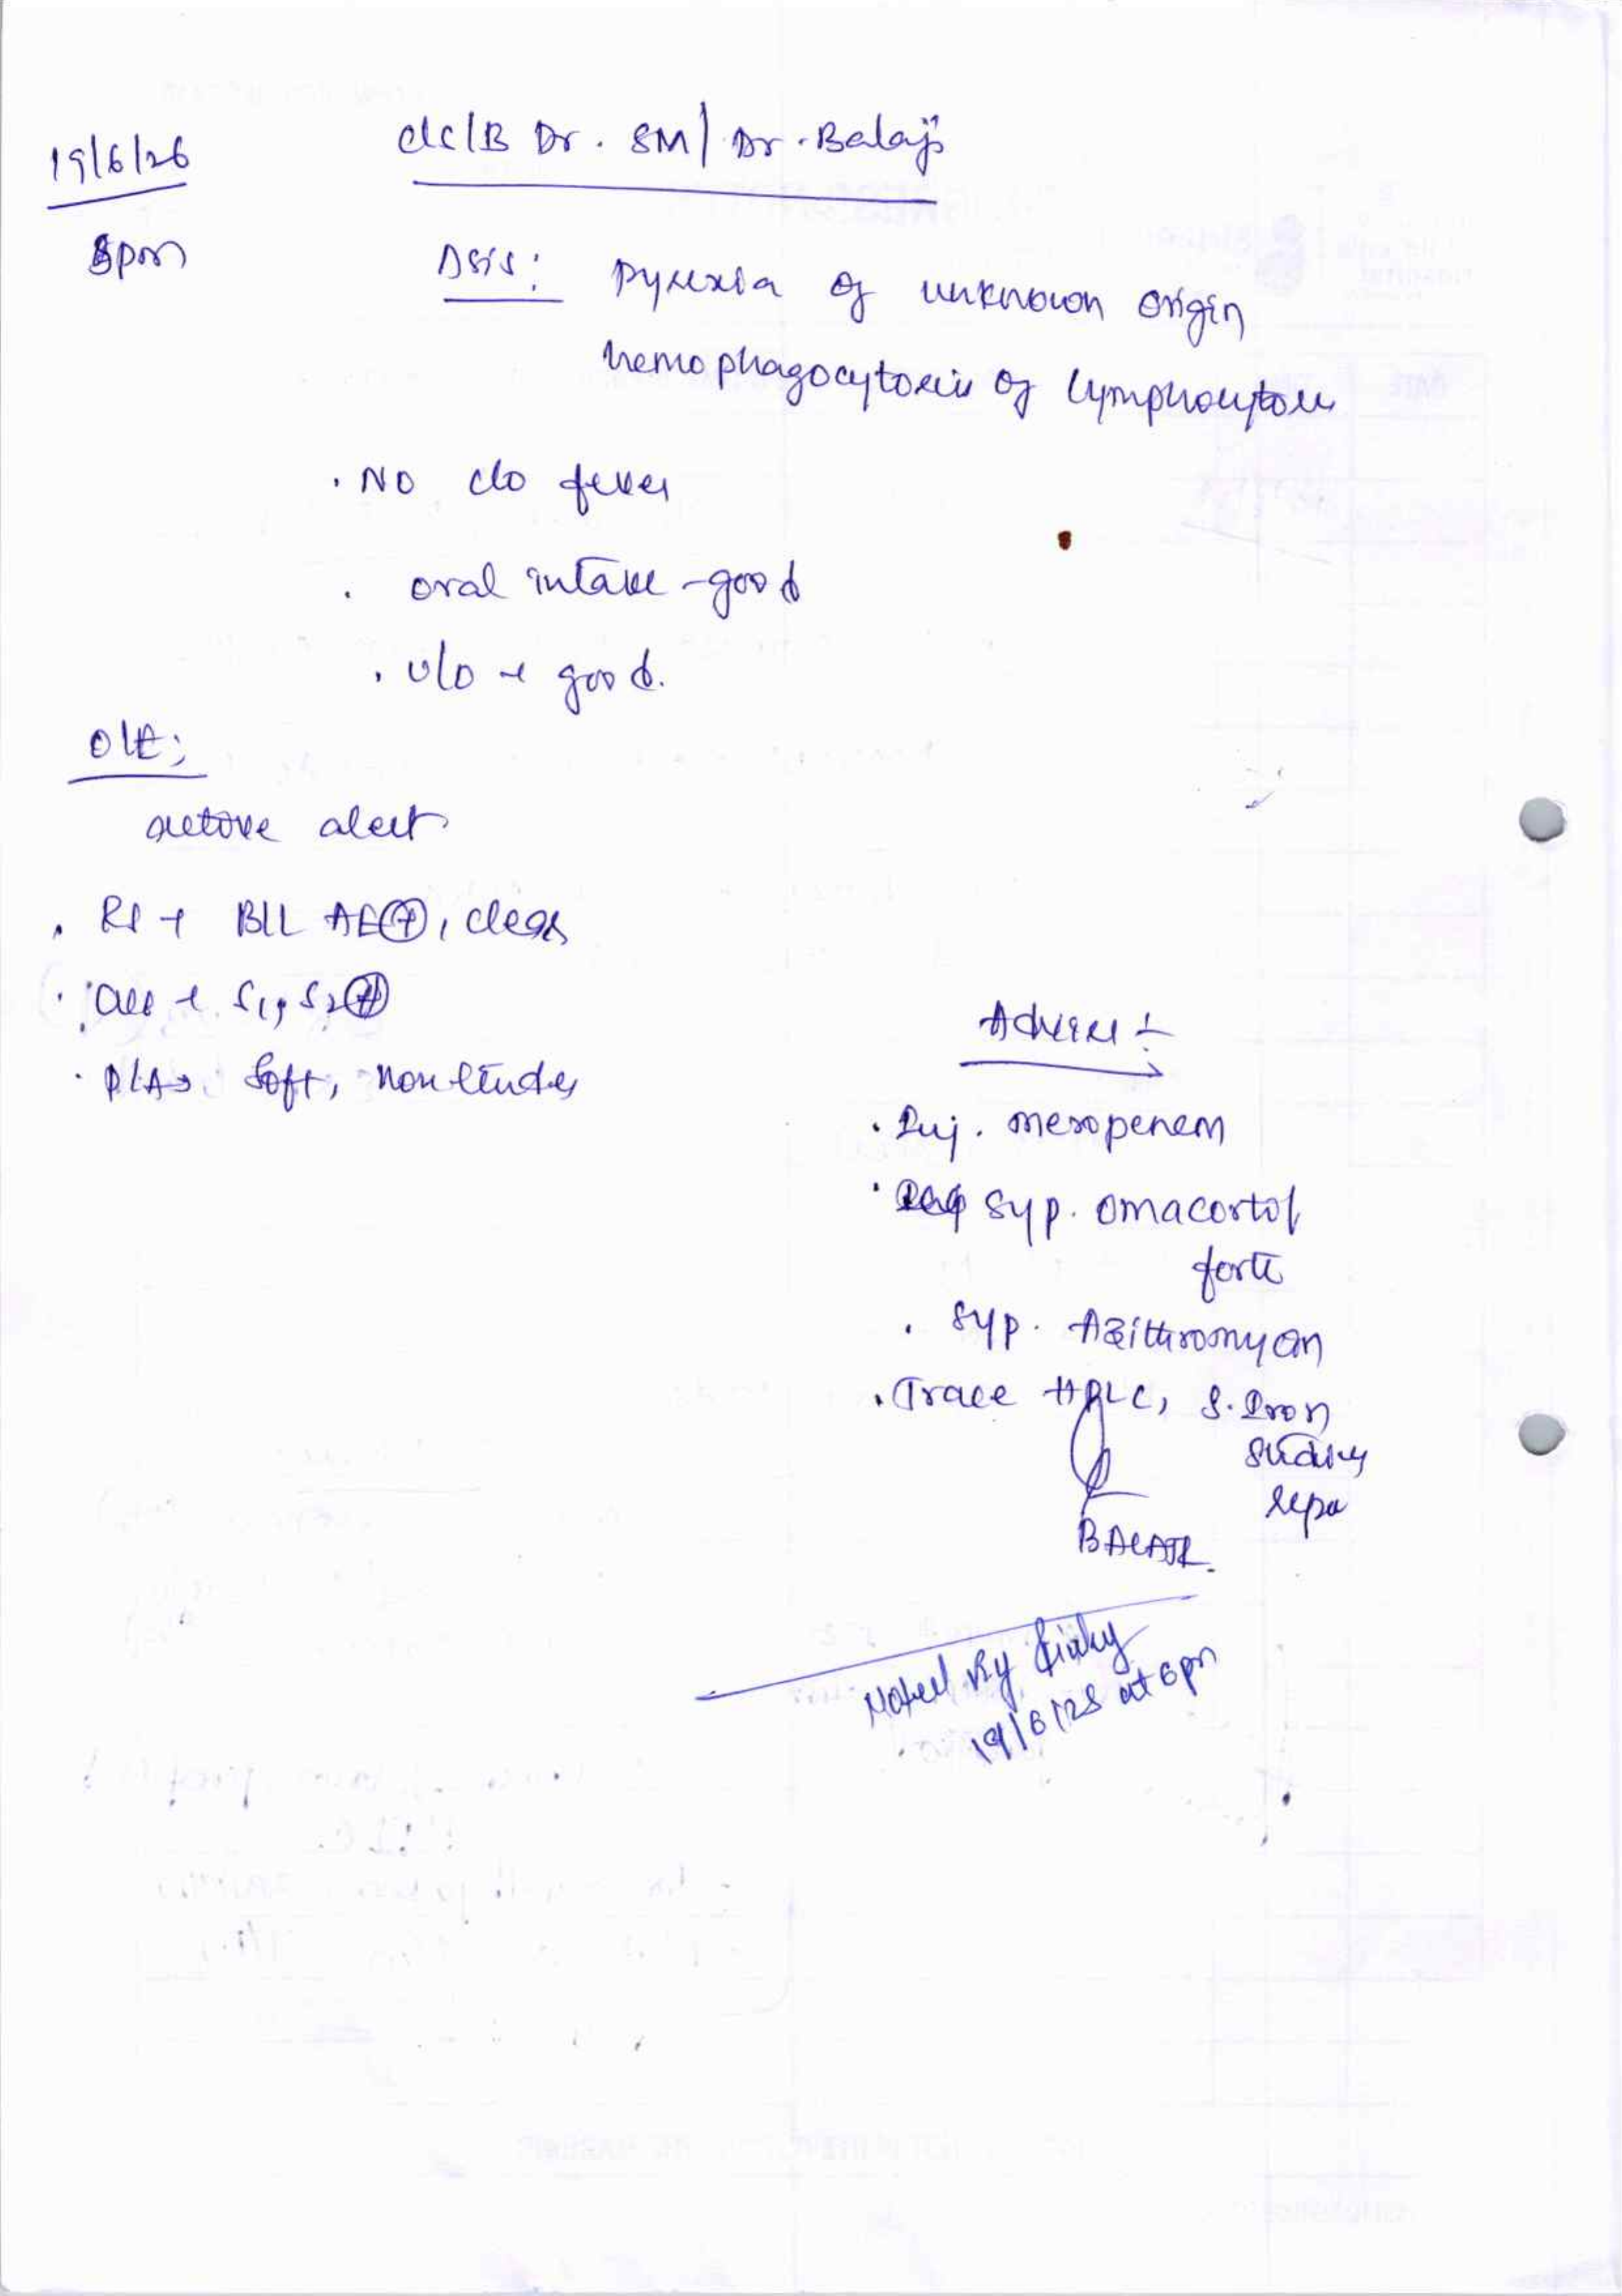 19/6/26
c/s/B Dr. SM/ Dr. Balaji
5pm
Dsis: Pyrexia of unknown origin
hemophagocytosis of lymphocytosis
. NO c/o fever
. oral intake - good
. U/O → good.
O/E;
active alert
. RS → B/L AE⊕, clear
. CVS → S1, S2⊕
. P/A→ Soft, non tender
Advice :-
. Inj. meropenem
. Syp. omacortol
forte
. Syp. Azithromycin
. Trace HPLC, S. Iron
studies
repo
BALAJI.
Noted by
19/6/25 at 6pm